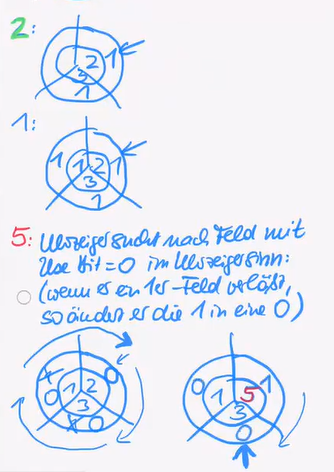 2:
2 1
3
1
1:
1 1 2 1
3
1
5: Uhrzeiger sucht nach Feld mit
Use Bit = 0 im Uhrzeigersinn:
(wenn er ein 1er-Feld verläßt,
so ändert er die 1 in eine 0)
x 0 0 1
1 2 1 5
0 3 3
x 0 0